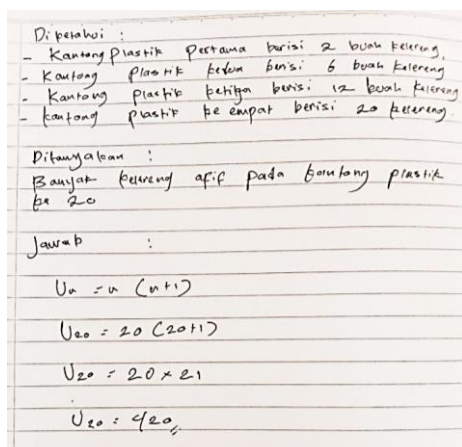 Diketahui :
- Kantong plastik pertama berisi 2 buah kelereng.
- Kantong plastik kedua berisi 6 buah kelereng
- Kantong plastik ketiga berisi 12 buah kelereng
- kantong plastik ke empat berisi 20 kelereng
Ditanyakan :
Banyak kelereng afif pada kantong plastik
ke 20
Jawab :
Un = n (n+1)
U20 = 20 (20+1)
U20 = 20 x 21
U20 = 420,,